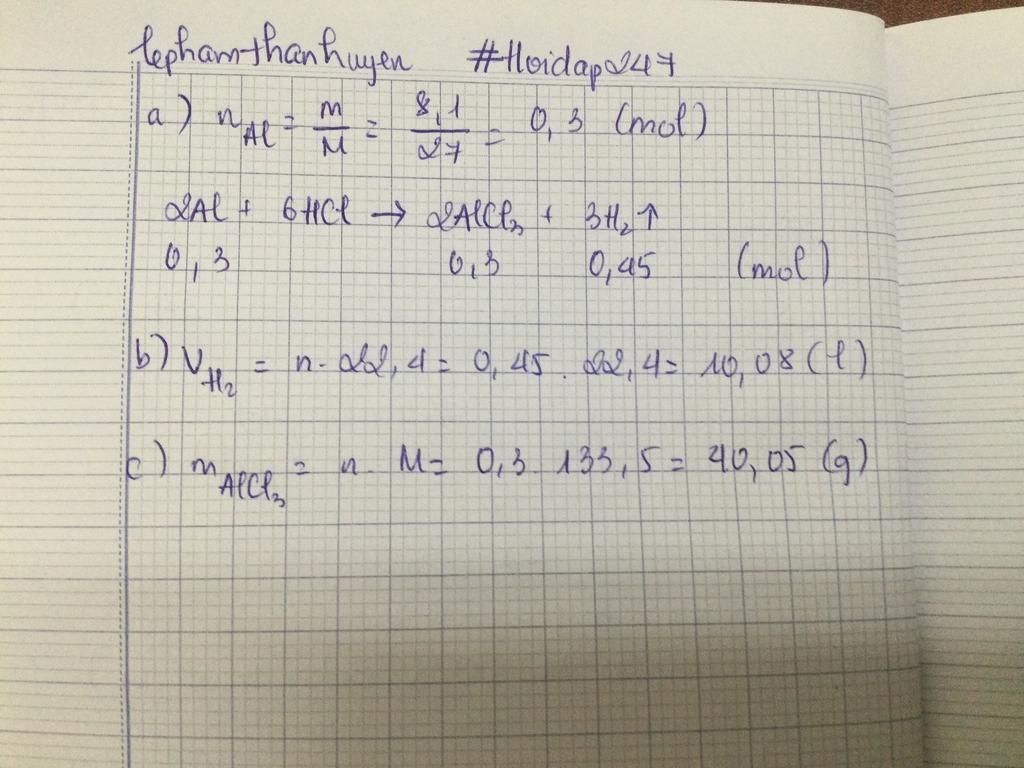 lephamthanhuyen #Hoidap247
a) nAl = m/M = 8,1/27 = 0,3 (mol)
2Al + 6HCl → 2AlCl₃ + 3H₂↑
0,3 0,3 0,45 (mol)
b) VH₂ = n. 22,4 = 0,45. 22,4 = 10,08 (l)
c) mAlCl₃ = n. M = 0,3. 133,5 = 40,05 (g)